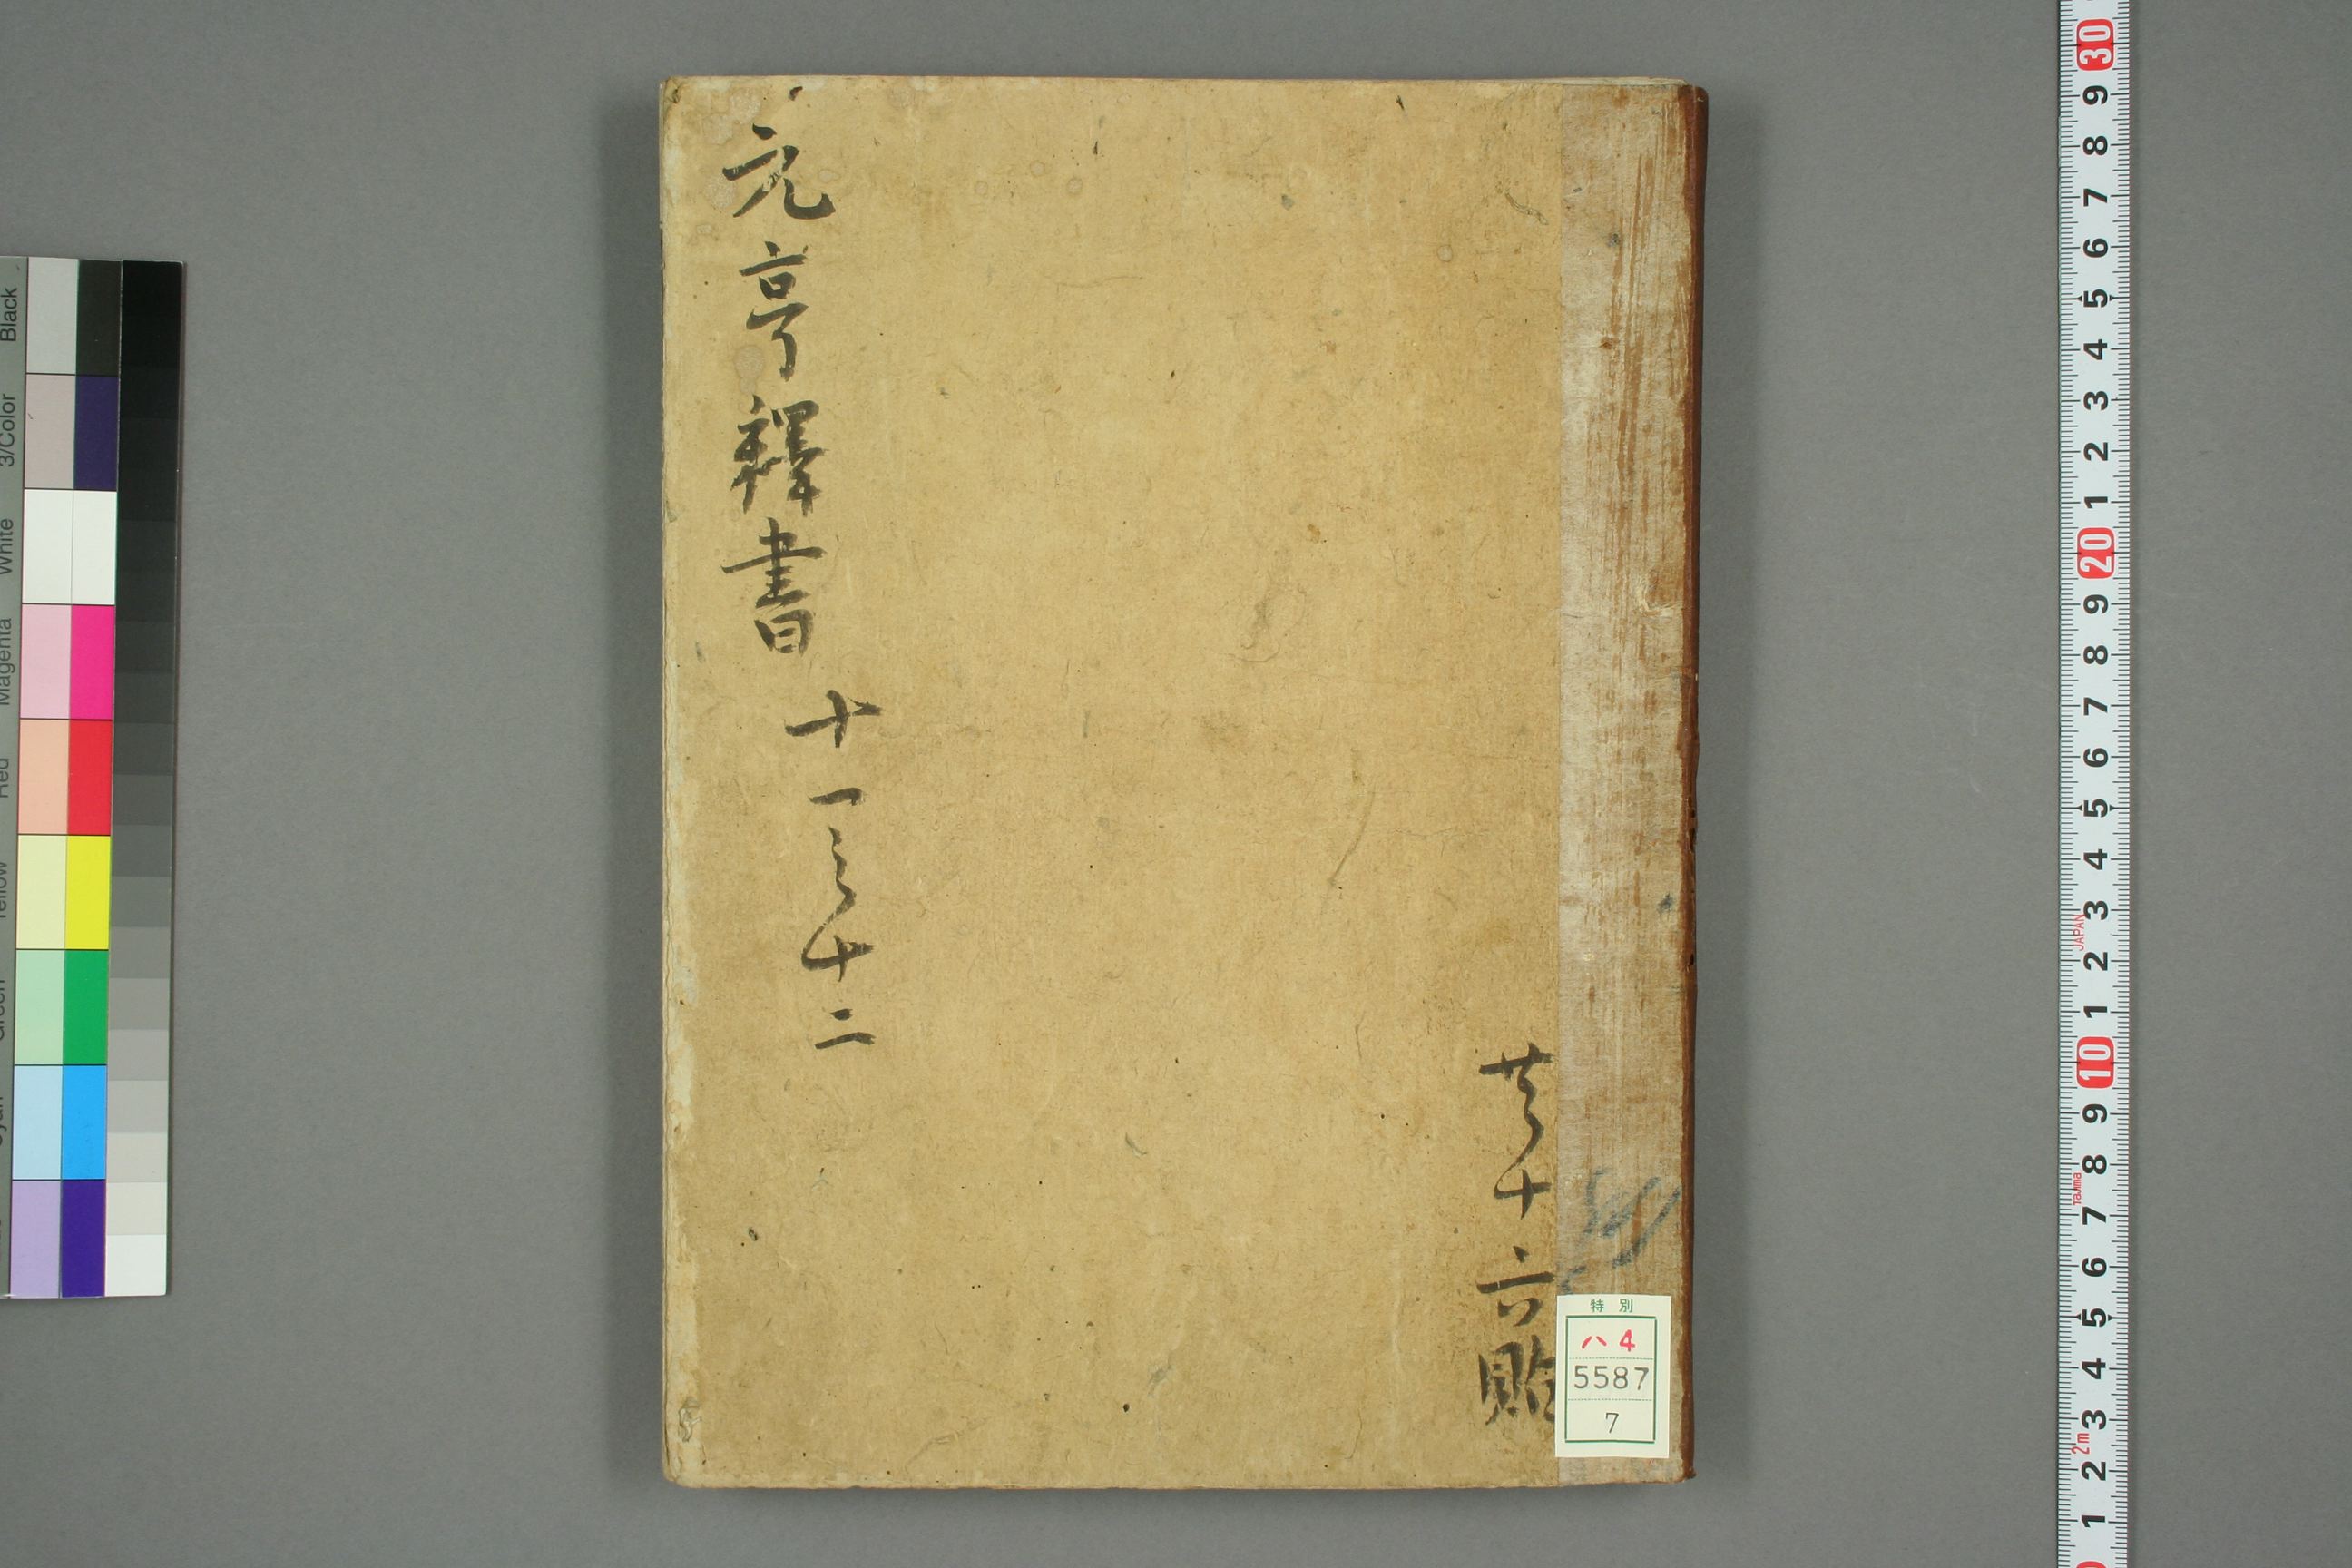 元亨釋書
十一之十二
共十六
特別
ハ4
5587
7
Black
3/Color
White
Magenta
Red
Yellow
Green
Cyan
30
9
8
7
6
5
4
3
2
1
20
9
8
7
6
5
4
3
2
1
10
9
8
7
6
5
4
3
2
1
JAPAN
Tajima
2m